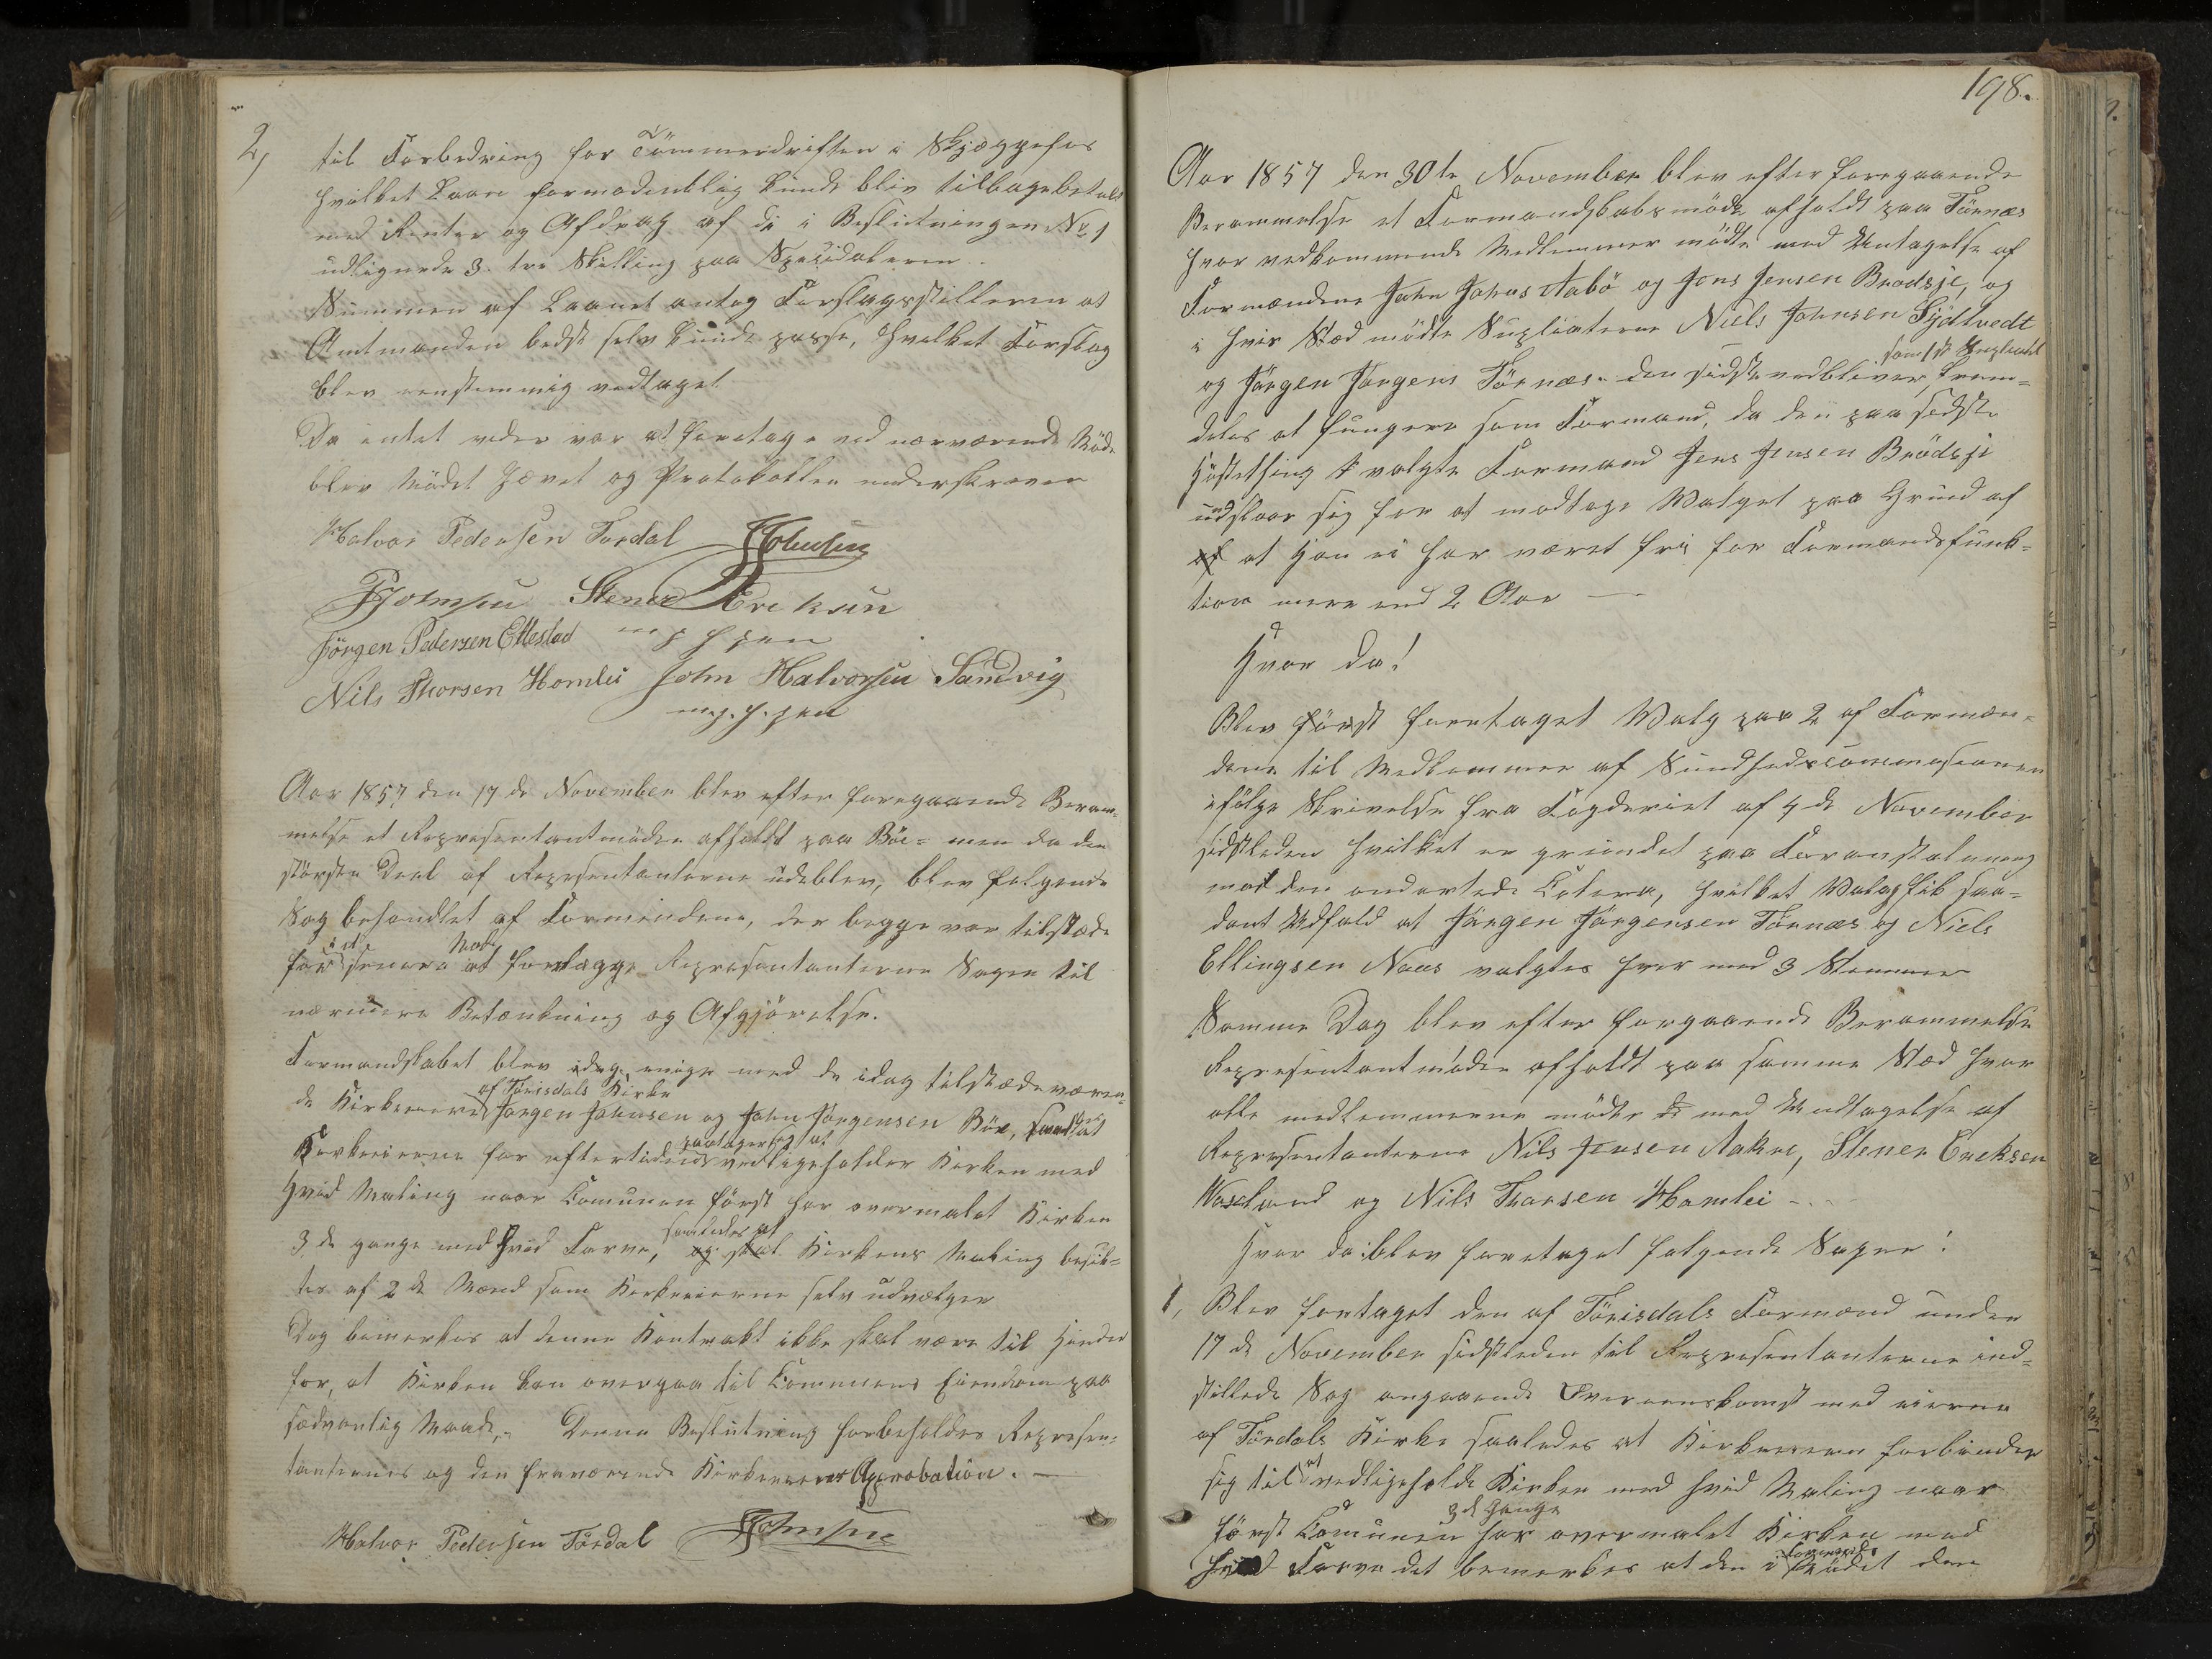 2, til Forbedring for Tömmerdriften i Skjæggefos
hvilket Laan formodentlig kunde bliv tilbagebetalt
med Renter og Afdrag af de i Beslutningen No 1
udlignede 3 tre Skilling paa Speciedaleren.
Summen af Laanet antog Forslagsstilleren at
Amtmanden bedst selv kunde passe, hvilket Forslag
blev eenstemmig vedtaget
Da intet videre var at foretage ved nærværende Möde
blev Mödet hævet og Protokollen underskreven
Halvor Pedersen Tordal JJohnsen
PJohnsen Stener Ereksen
Jörgen Pedersen Ettestad m p h pen
Nils Thorsen Homlei John Halvorsen Sandvig
m. p. h. pen
Aar 1857 den 17de November blev efter foregaaende Beram-
melse et Representantmöde afholdt paa Böe= men da den
störste Deel af Represententerne udeblev, blev folgende
Sag behandlet af Formændene, der begge var tilstæde
for i et senere Möde at forelægge Representanterne Sagen til
nærmere Betænkning og Afgjörelse.
Formandskabet blev idag enige med de idag tilstædeværen-
de Kirkeeiere af Törisdals Kirke Jorgen Johnsen og John Jörgensen Böe, at
Kirkeeierne for eftertiden paatager sig at vedligeholder Kirken med
Hvid Maling naar Comunen först har overmalet Kirken
3de gange med Hvid Farve, saaledes at og skal Kirkens Maling besik-
tes af 2de Mænd som Kirkeeierne selv udvælger
Dog bemerkes at denne Kontrakt ikke skal være til Hinder
for, at Kirken kan overgaa til Communens Eiendom paa
sædvanlig Maade,- Denne Beslutning forbeholdes Represen-
tanternes og den fraværende Kirkeeiers Approbation. —
Halvor Pedersen Tördal JJohnsen
198.
Aar 1857 den 30te November blev efter foregaaende
Berammelse et Formandskabsmöde afholdt paa Törnæs
hvor vedkommende Medlemmer mödte med Untagelse af
Formændene John Johns Aabö og Jens Jensen Brødsje, og
i hvis Sted mödte Suplianterne Niels Johnsen Sydtvedt
og Jörgen Jörgens Törnæs. den sidste vedbliver som 1ste Supleant frem=
deles at fungere som Formand, da den paa sidste
Hösttthing valgte Formand Jens Jensen Brödsje
undslaar sig for at modtage Valget paa Grund af
af at han ei har været fri for Formandsfunk-
tion mere end 2 Aar —
Hvor da!
Blev först foretaget Valg paa 2 af Formæn-
dene til Medlemmer af Sundhedscommisionen
ifölge Skrivelse fra Fogderiet af 4de November
sidstleden hvilket er grundet paa Foranstaltning
mod den ondartede Colera, hvilket Valg fik saa=
dant Udfald at Jörgen Jörgensen Törnæs og Niels
Ellingsen Naas valgtes hver med 3 Stemmer
Samme Dag blev efter forgaaende Berammelse
Representantmöde afholdt paa samme Sted hvor
alle medlemmerne mödte med Undtagelse af
Representanterne Nils Jensen Aakre, Stener Ereksen
Waseland og Nils Thorsen Homlei -..
Hvor da blev foretaget folgende Sager:
1, Blev fortaget den af Törisdals Formænd under
17de November sidstleden til Representanterne ind-
stillede Sag angaaende Overeenskomst med eierne
af Tördals Kirke saaledes at Kirkeeieren forbinder
sig til at vedligeholde Kirken med hvid Maling naar
först Comunen har 3de Gange overmalet Kirken med
hvid Farve det bemerkes at den i Mödet den